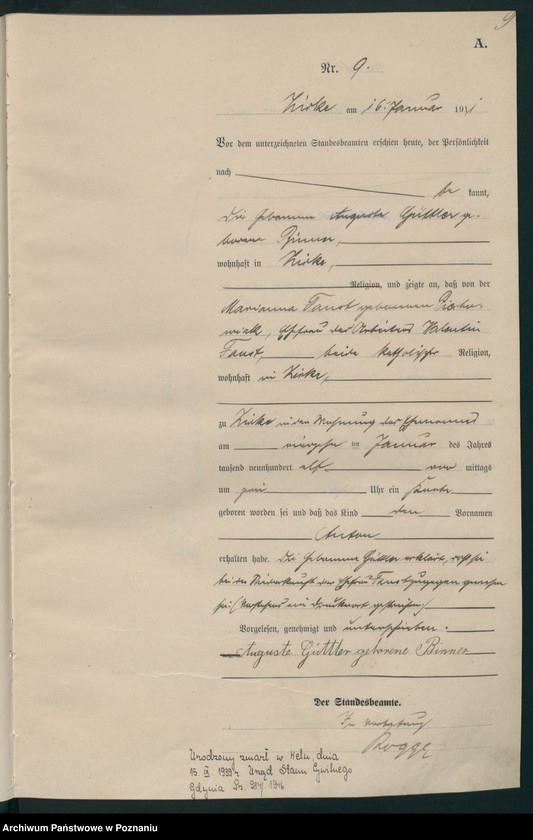 9
A.
Nr. 9.
Zirke am 16. Januar 1911
Vor dem unterzeichneten Standesbeamten erschien heute, der Persönlichkeit
nach
be kannt,
die Hebamme Auguste Güttler ge-
borene Binner,
wohnhaft in Zirke,
Religion, und zeigte an, daß von der
Marianna Faust geborenen
Ehefrau des Arbeiters Valentin
Faust, beide katholischer Religion,
wohnhaft in Zirke,
zu Zirke in der Wohnung des Ehemannes
am vierzehn ten Januar des Jahres
tausend neunhundert elf vor mittags
um Uhr ein Knabe
geboren worden sei und daß das Kind den Vornamen
Anton
erhalten habe. Die Hebamme Güttler erklärt, daß sie
bei der Niederkunft der Ehefrau Faust zugegen gewesen
sei. (Vorstehend ein Druckwort gestrichen)
Vorgelesen, genehmigt und unterschrieben.
Auguste Güttler geborene Binner
Der Standesbeamte.
In Vertretung
Rogge
Urodzony zmarł w Helu dnia
15. IX 1939 r. Urząd Stanu Cywilnego
Gdynia Nr.
Archiwum Państwowe w Poznaniu